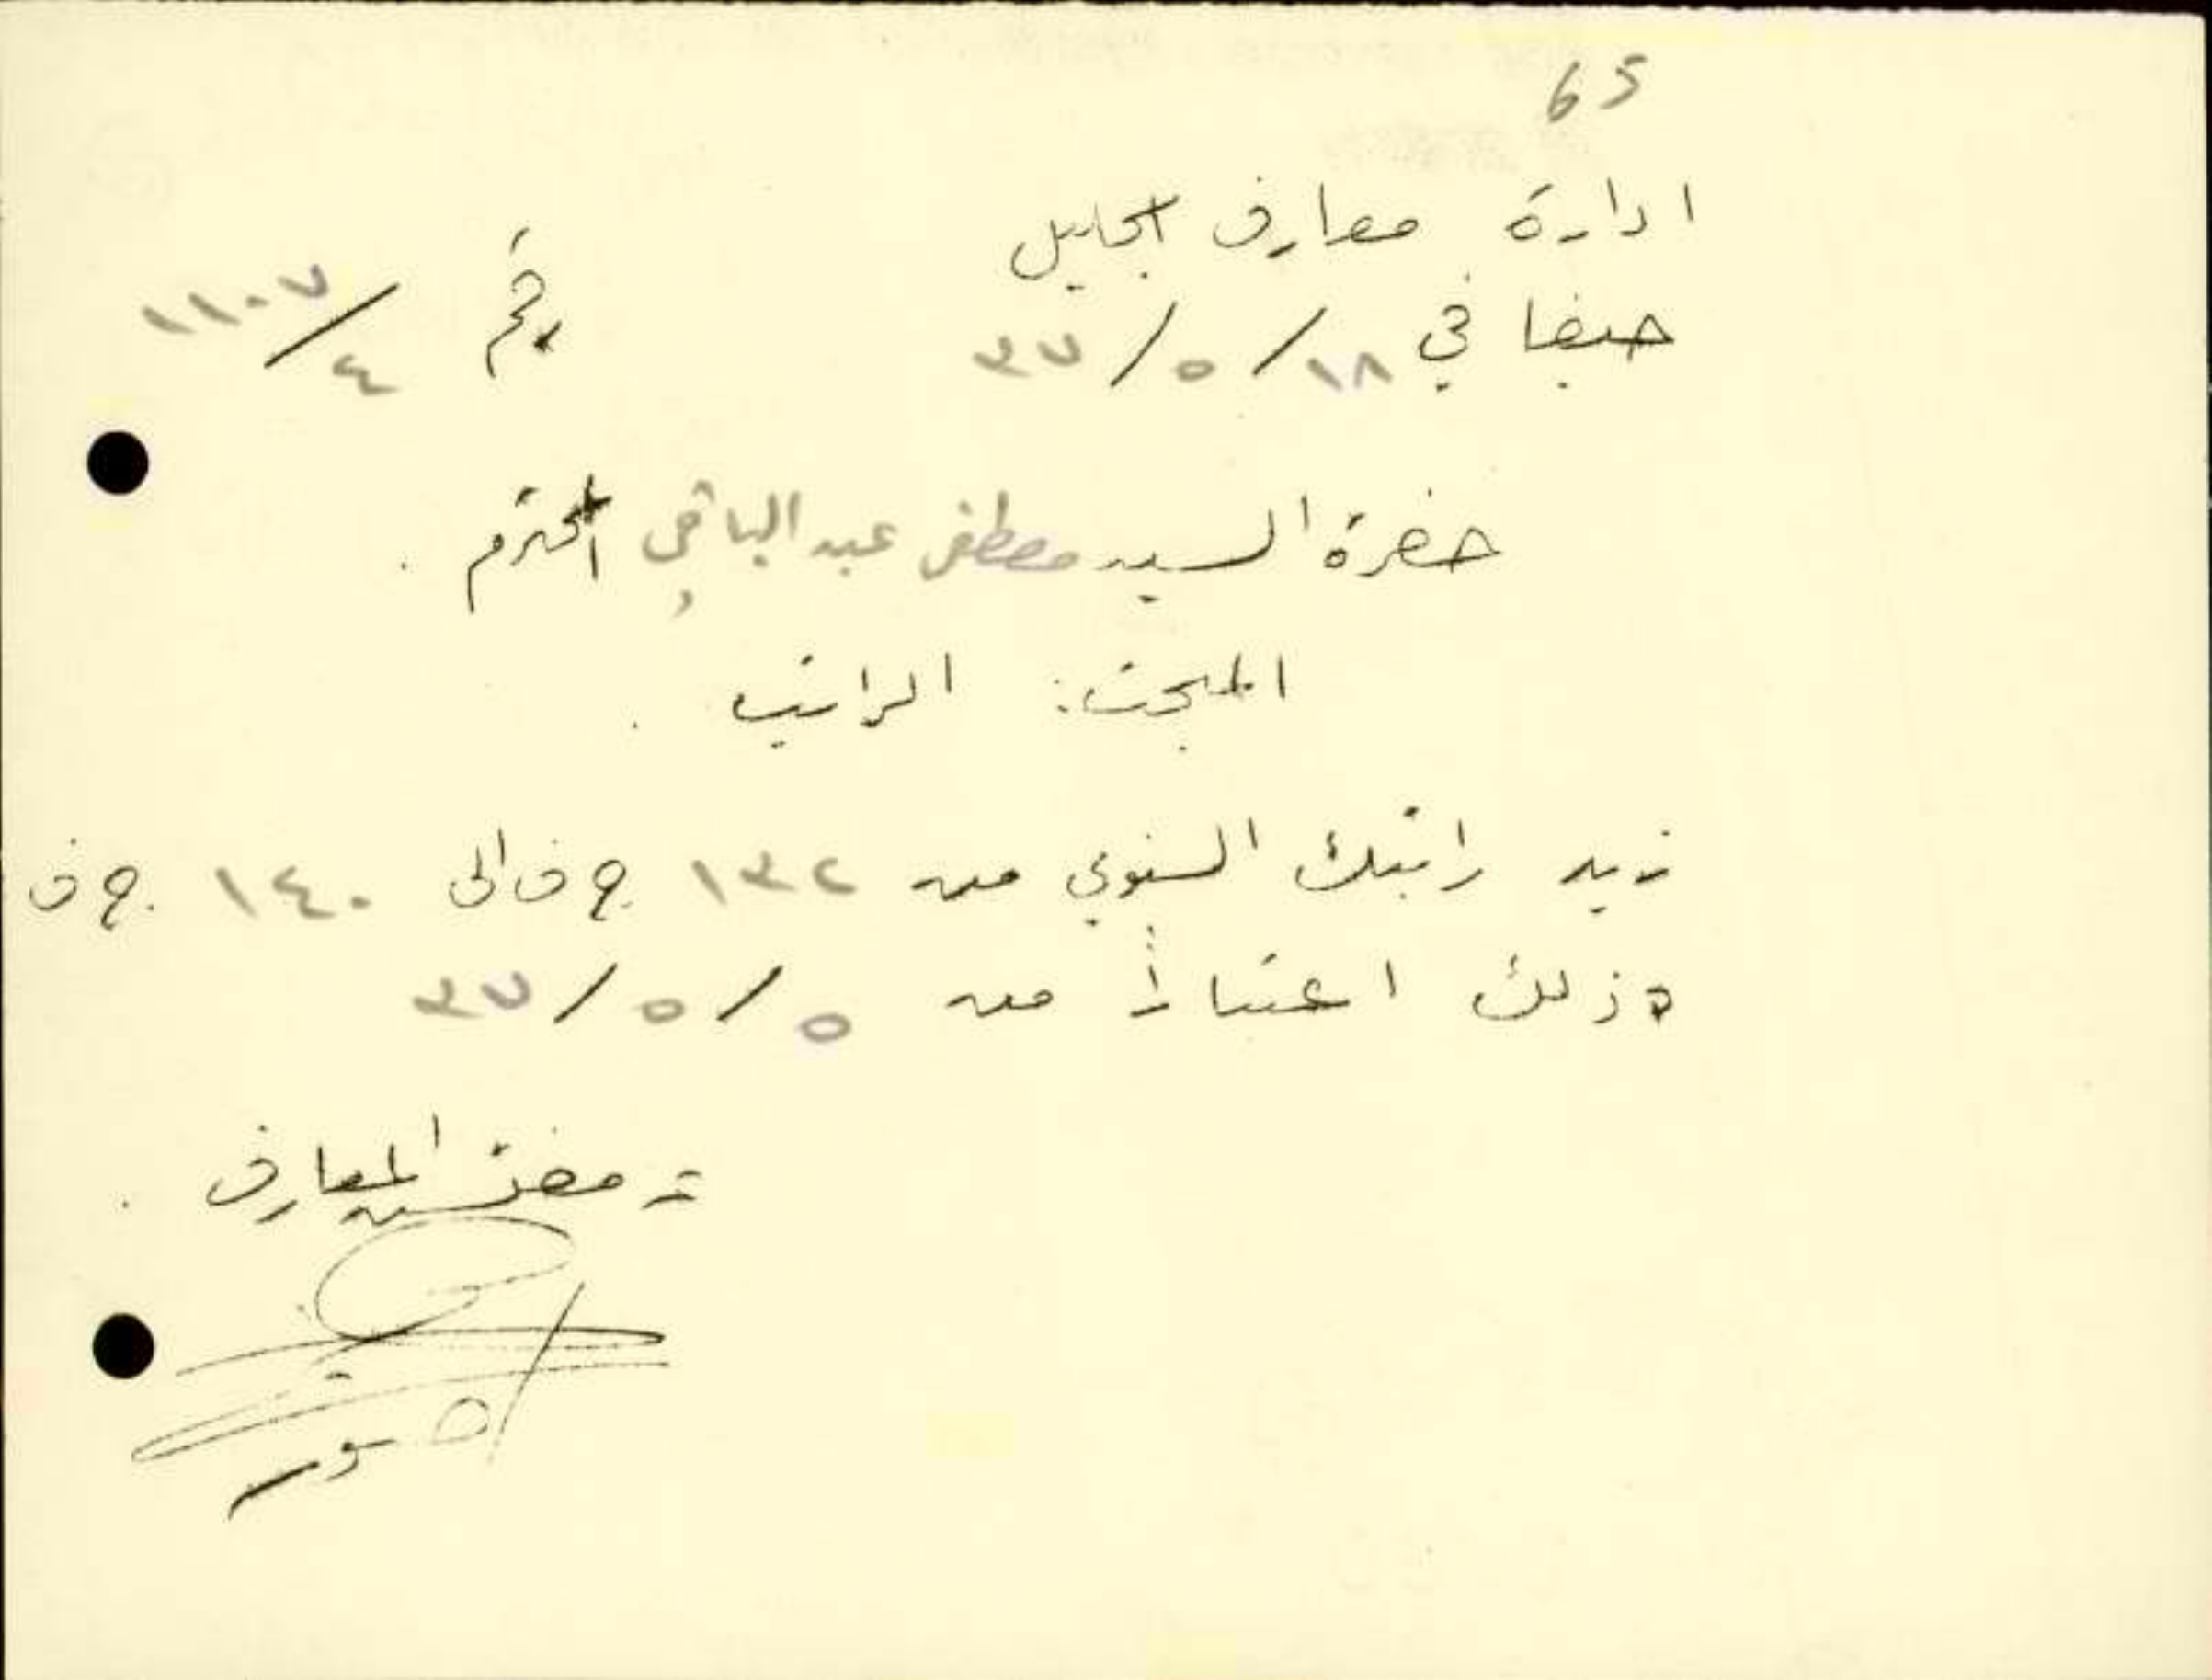 65
ادارة معارف الجليل
حيفا في ١٨/٥/٣٧ رقم ١١٠٧/٤
حضرة السيد مصطفى عبد الباقي المحترم .
المبحث: الراتب .
زيد راتبك السنوي من ١٣٢ ج ف الى ١٤٠ ج ف
وذلك اعتباراً من ٥/٥/٣٧
مفتش المعارف .